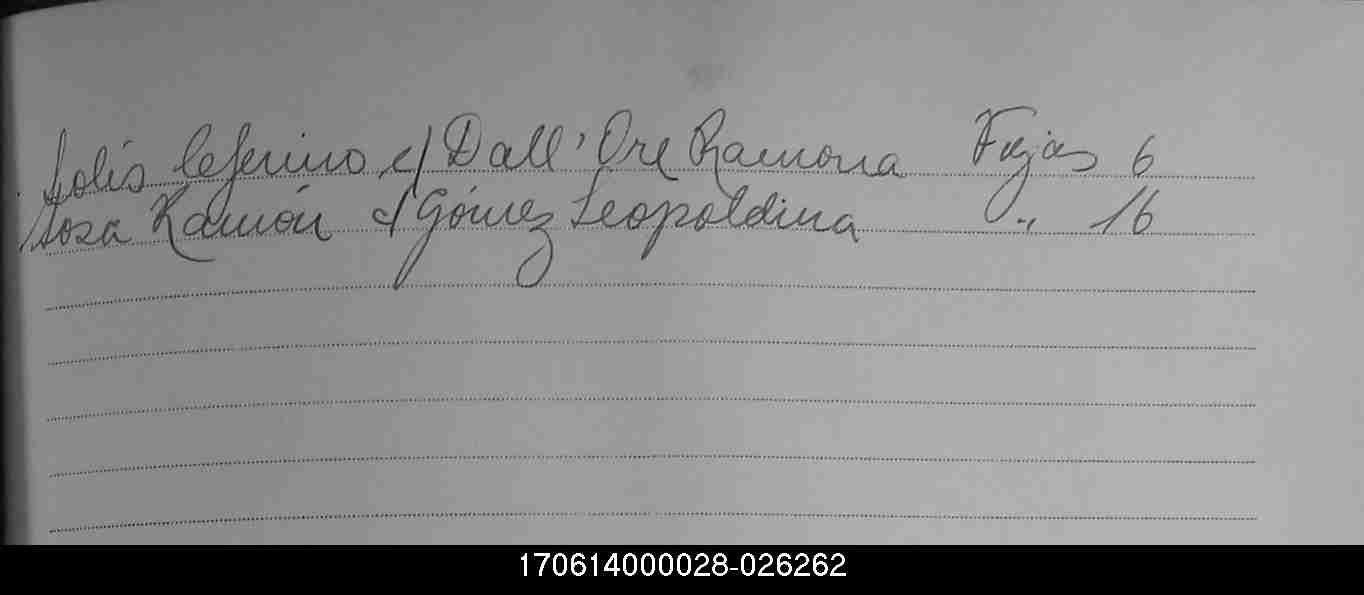 Solís Ceferino c/ Dall'Ore Ramona Fojas 6
Sosa Ramón c/ Gómez Leopoldina " 16
170614000028-026262